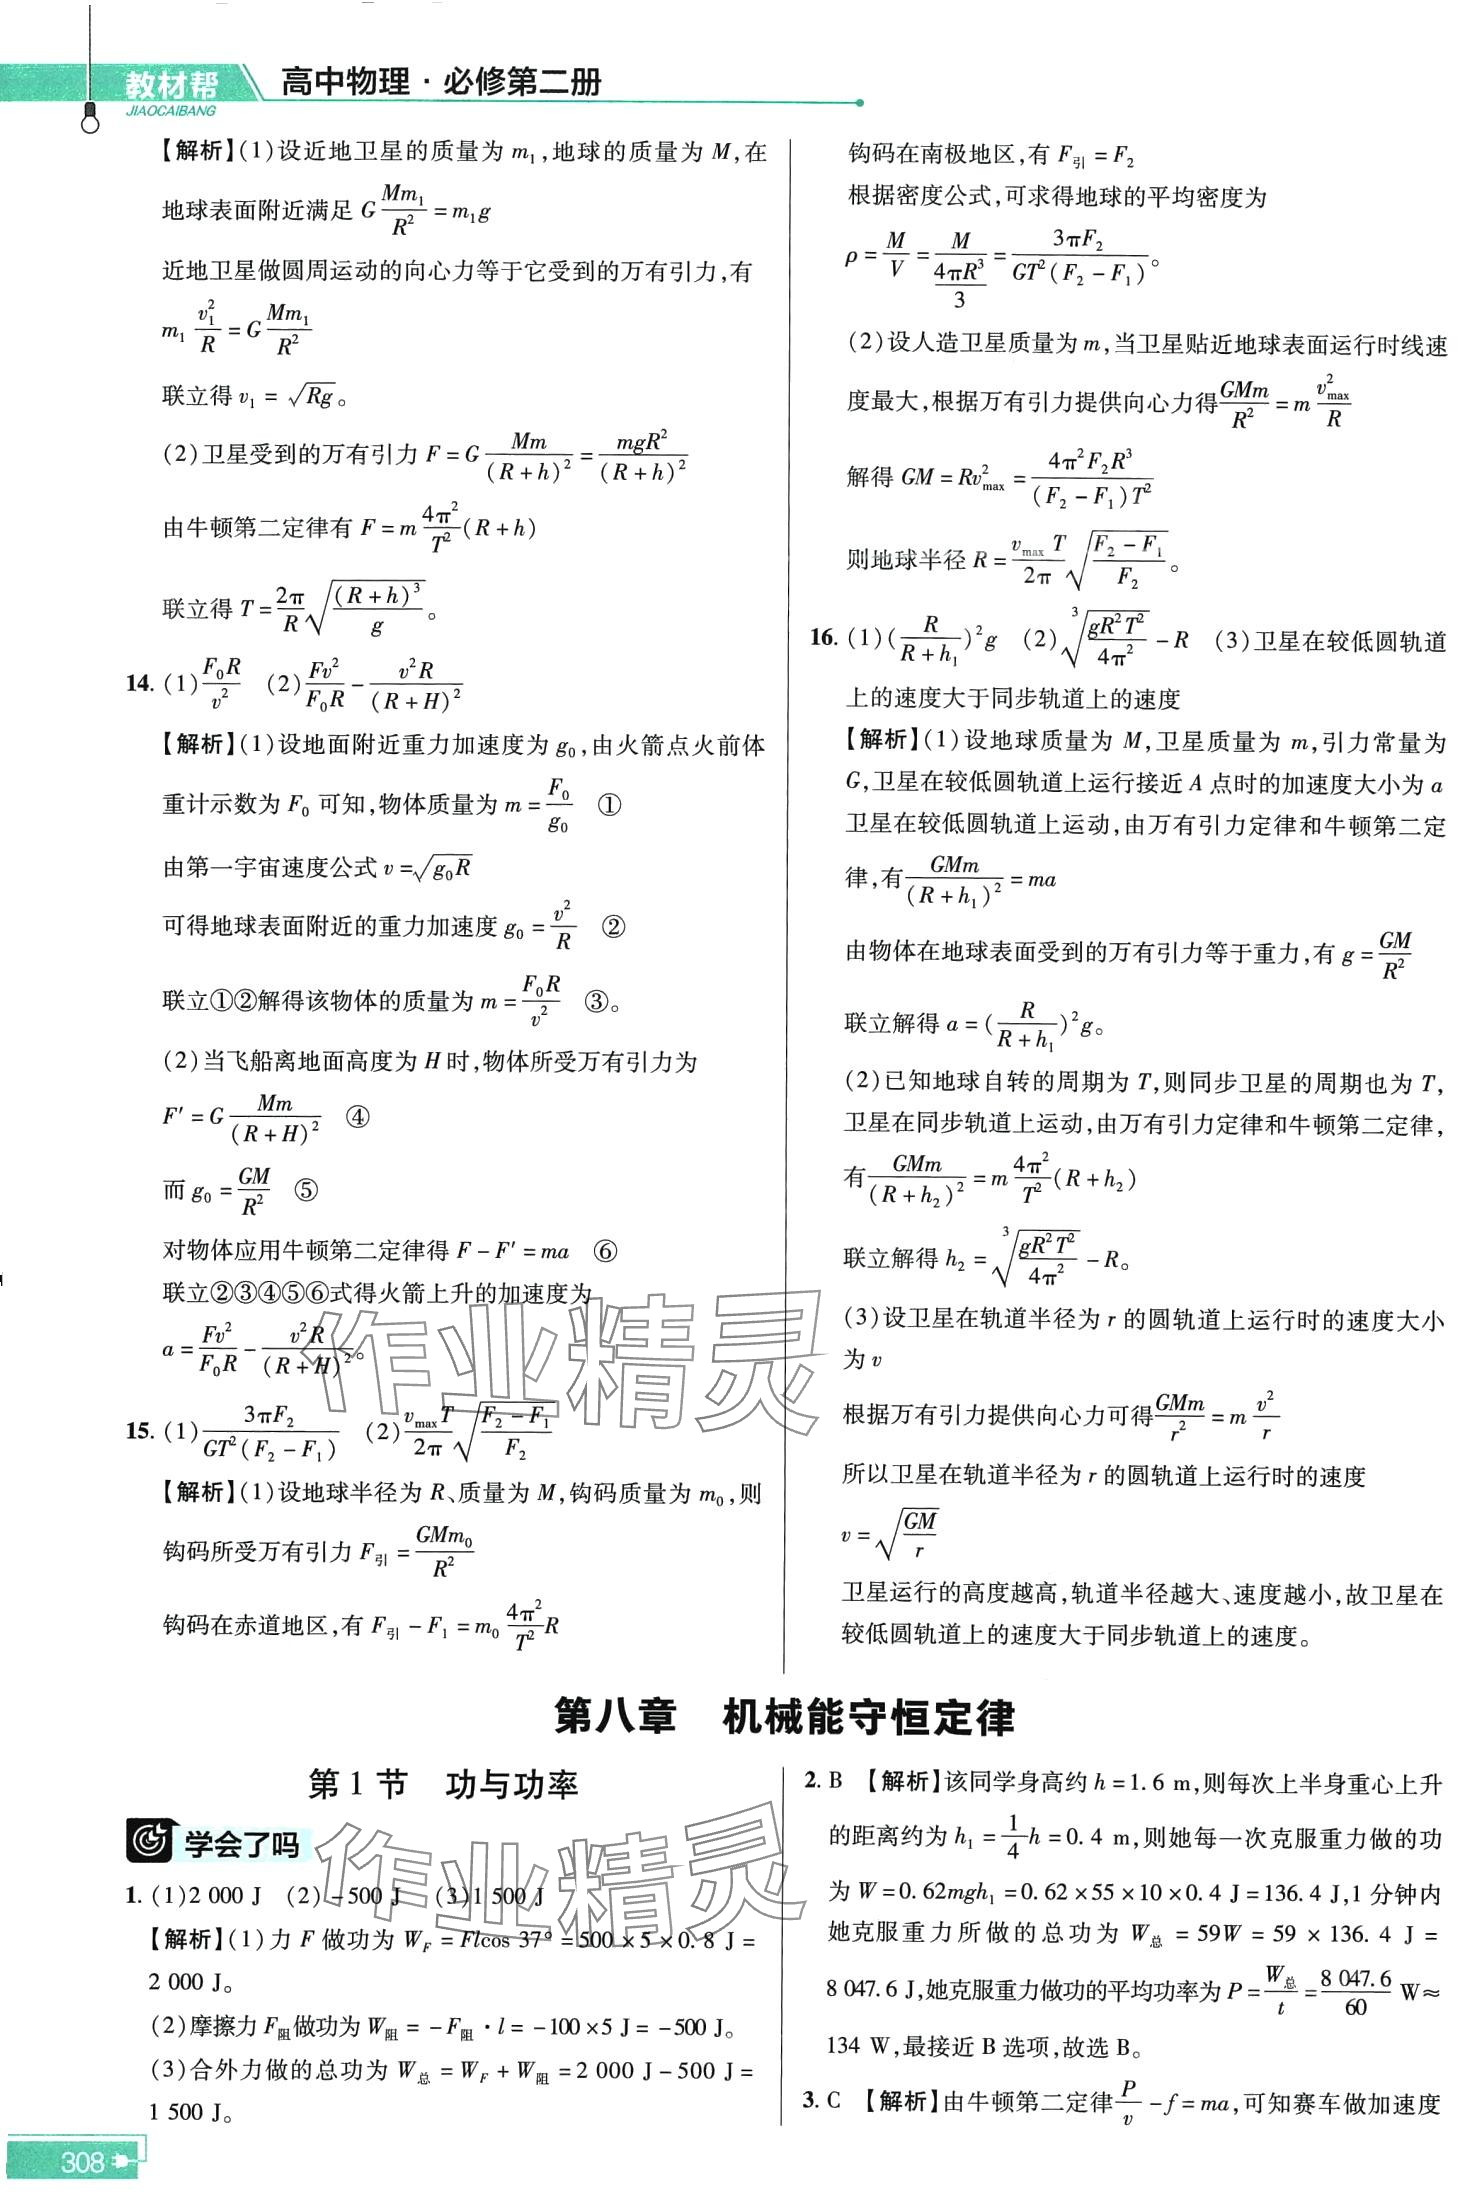 教材帮
JIAOCAIBANG
高中物理·必修第二册
【解析】(1)设近地卫星的质量为 m₁,地球的质量为 M,在
地球表面附近满足 G Mm₁/R² = m₁g
近地卫星做圆周运动的向心力等于它受到的万有引力,有
m₁ v₁²/R = G Mm₁/R²
联立得 v₁ = √(Rg)。
(2)卫星受到的万有引力 F = G Mm/(R+h)² = mgR²/(R+h)²
由牛顿第二定律有 F = m 4π²/T² (R+h)
联立得 T = 2π/R √((R+h)³/g)。
14. (1) F₀R/v² (2) Fv²/F₀R − v²R/(R+H)²
【解析】(1)设地面附近重力加速度为 g₀,由火箭点火前体
重计示数为 F₀ 可知,物体质量为 m = F₀/g₀ ①
由第一宇宙速度公式 v = √(g₀R)
可得地球表面附近的重力加速度 g₀ = v²/R ②
联立①②解得该物体的质量为 m = F₀R/v² ③。
(2)当飞船离地面高度为 H 时,物体所受万有引力为
F′ = G Mm/(R+H)² ④
而 g₀ = GM/R² ⑤
对物体应用牛顿第二定律得 F − F′ = ma ⑥
联立②③④⑤⑥式得火箭上升的加速度为
a = Fv²/F₀R − v²R/(R+H)²。
15. (1) 3πF₂/GT²(F₂−F₁) (2) v_max T/2π √((F₂−F₁)/F₂)
【解析】(1)设地球半径为 R、质量为 M,钩码质量为 m₀,则
钩码所受万有引力 F引 = GMm₀/R²
钩码在赤道地区,有 F引 − F₁ = m₀ 4π²/T² R
钩码在南极地区,有 F引 = F₂
根据密度公式,可求得地球的平均密度为
ρ = M/V = M/(4πR³/3) = 3πF₂/GT²(F₂−F₁)。
(2)设人造卫星质量为 m,当卫星贴近地球表面运行时线速
度最大,根据万有引力提供向心力得 GMm/R² = m v²_max/R
解得 GM = Rv²_max = 4π²F₂R³/(F₂−F₁)T²
则地球半径 R = v_max T/2π √((F₂−F₁)/F₂)。
16. (1)(R/(R+h₁))²g (2) ³√(gR²T²/4π²) − R (3)卫星在较低圆轨道
上的速度大于同步轨道上的速度
【解析】(1)设地球质量为 M,卫星质量为 m,引力常量为
G,卫星在较低圆轨道上运行接近 A 点时的加速度大小为 a
卫星在较低圆轨道上运动,由万有引力定律和牛顿第二定
律,有 GMm/(R+h₁)² = ma
由物体在地球表面受到的万有引力等于重力,有 g = GM/R²
联立解得 a = (R/(R+h₁))²g。
(2)已知地球自转的周期为 T,则同步卫星的周期也为 T,
卫星在同步轨道上运动,由万有引力定律和牛顿第二定律,
有 GMm/(R+h₂)² = m 4π²/T² (R+h₂)
联立解得 h₂ = ³√(gR²T²/4π²) − R。
(3)设卫星在轨道半径为 r 的圆轨道上运行时的速度大小
为 v
根据万有引力提供向心力可得 GMm/r² = m v²/r
所以卫星在轨道半径为 r 的圆轨道上运行时的速度
v = √(GM/r)
卫星运行的高度越高,轨道半径越大、速度越小,故卫星在
较低圆轨道上的速度大于同步轨道上的速度。
作业精灵
第八章 机械能守恒定律
第 1 节 功与功率
学会了吗
1. (1)2 000 J (2)−500 J (3)1 500 J
【解析】(1)力 F 做功为 W_F = Flcos 37° = 500×5×0.8 J =
2 000 J。
(2)摩擦力 F阻做功为 W阻 = −F阻·l = −100×5 J = −500 J。
(3)合外力做的总功为 W总 = W_F + W阻 = 2 000 J−500 J =
1 500 J。
2. B 【解析】该同学身高约 h = 1.6 m,则每次上半身重心上升
的距离约为 h₁ = 1/4 h = 0.4 m,则她每一次克服重力做的功
为 W = 0.62mgh₁ = 0.62×55×10×0.4 J = 136.4 J,1 分钟内
她克服重力所做的总功为 W总 = 59W = 59 × 136.4 J =
8 047.6 J,她克服重力做功的平均功率为 P = W总/t = 8 047.6/60 W ≈
134 W,最接近 B 选项,故选 B。
3. C 【解析】由牛顿第二定律 P/v − f = ma,可知赛车做加速度
作业精灵
308